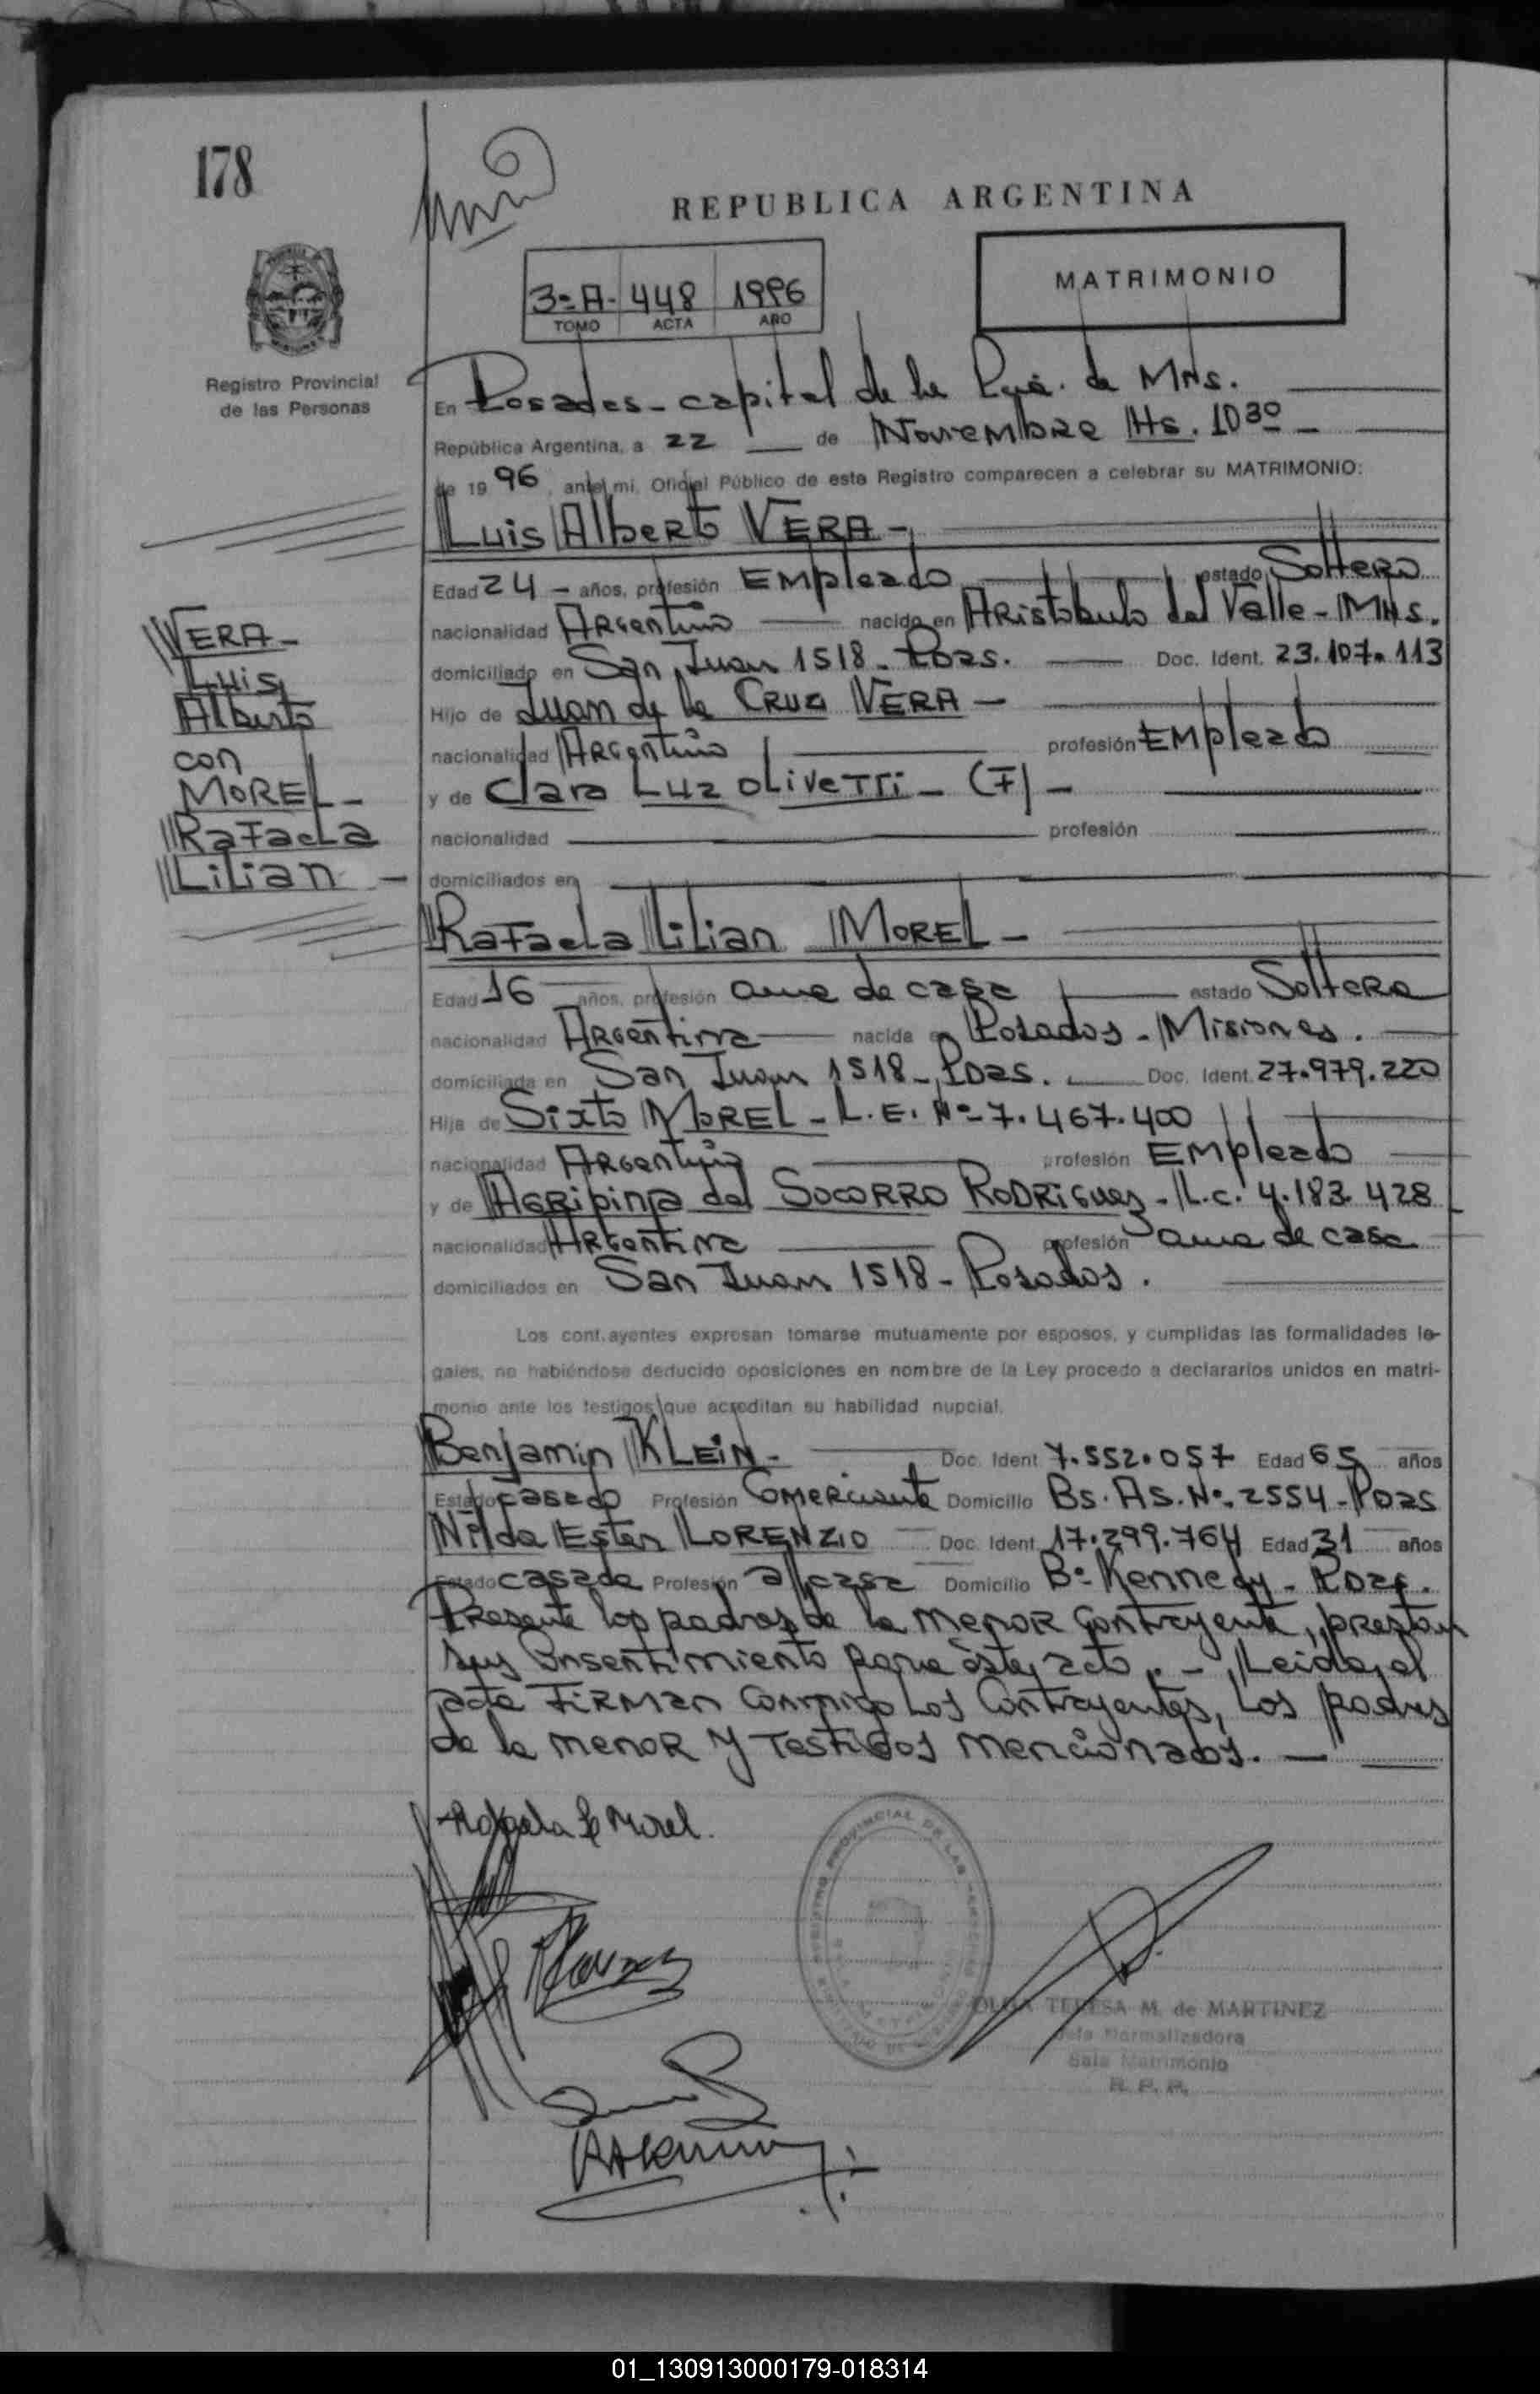 178
REPUBLICA ARGENTINA
MATRIMONIO
3º A - 448 1996
TOMO ACTA AÑO
Registro Provincial
de las Personas
En Posadas - capital de la Pcia. de Mns.
República Argentina, a 22 de Noviembre Hs. 10 30
de 1996, ante mi, Oficial Público de este Registro comparecen a celebrar su MATRIMONIO:
Luis Alberto VERA -
Edad 24 - años, profesión EMpleado estado Soltero
nacionalidad ARgentino nacido en ARistobulo del Valle - Mns.
domiciliado en San Juan 1518 - Pdas. Doc. Ident. 23.107.113
Hijo de Juan de la CRUZ VERA -
nacionalidad ARgentino profesión EMpleado
y de Clara Luz OLiveTTi - (F) -
nacionalidad profesión
domiciliados en
VERA -
Luis
Alberto
con
MOREL -
Rafaela
Lilian -
Rafaela Lilian MOREL -
Edad 16 años, profesión ama de casa estado Soltera
nacionalidad ARgentina nacida en Posadas - Misiones.
domiciliada en San Juan 1518 - Pdas. Doc. Ident. 27.979.220
Hija de Sixto MOREL - L.E. Nº 7.467.400
nacionalidad ARgentino profesión EMpleado
y de AGRipina del SOCORRO RODRIGuez - L.C. 4.183.428
nacionalidad ARgentina profesión ama de casa
domiciliados en San Juan 1518 - Posadas.
Los contrayentes expresan tomarse mutuamente por esposos, y cumplidas las formalidades le-
gales, no habiéndose deducido oposiciones en nombre de la Ley procedo a declararlos unidos en matri-
monio ante los testigos que acreditan su habilidad nupcial.
Benjamin KLEiN - Doc. Ident 7.552.057 Edad 65 años
Estado casado Profesión Comerciante Domicilio Bs. As. Nº 2554 - Pdas
Nilda Ester LORENZIO Doc. Ident. 17.299.764 Edad 31 años
Estado casada Profesión a/casa Domicilio Bº Kennedy - Pdas.
Presente los padres de la menor contrayente, prestan
sus consentimiento para este acto. - Leida el
acta FiRMan conmigo Los Contrayentes, Los padres
de la menor y Testigos mencionados. -
Rafaela L Morel.
REGISTRO PROVINCIAL DE LAS PERSONAS
OLGA TERESA M. de MARTINEZ
Jefa Normalizadora
Sala Matrimonio
R. P. P.
01_130913000179-018314